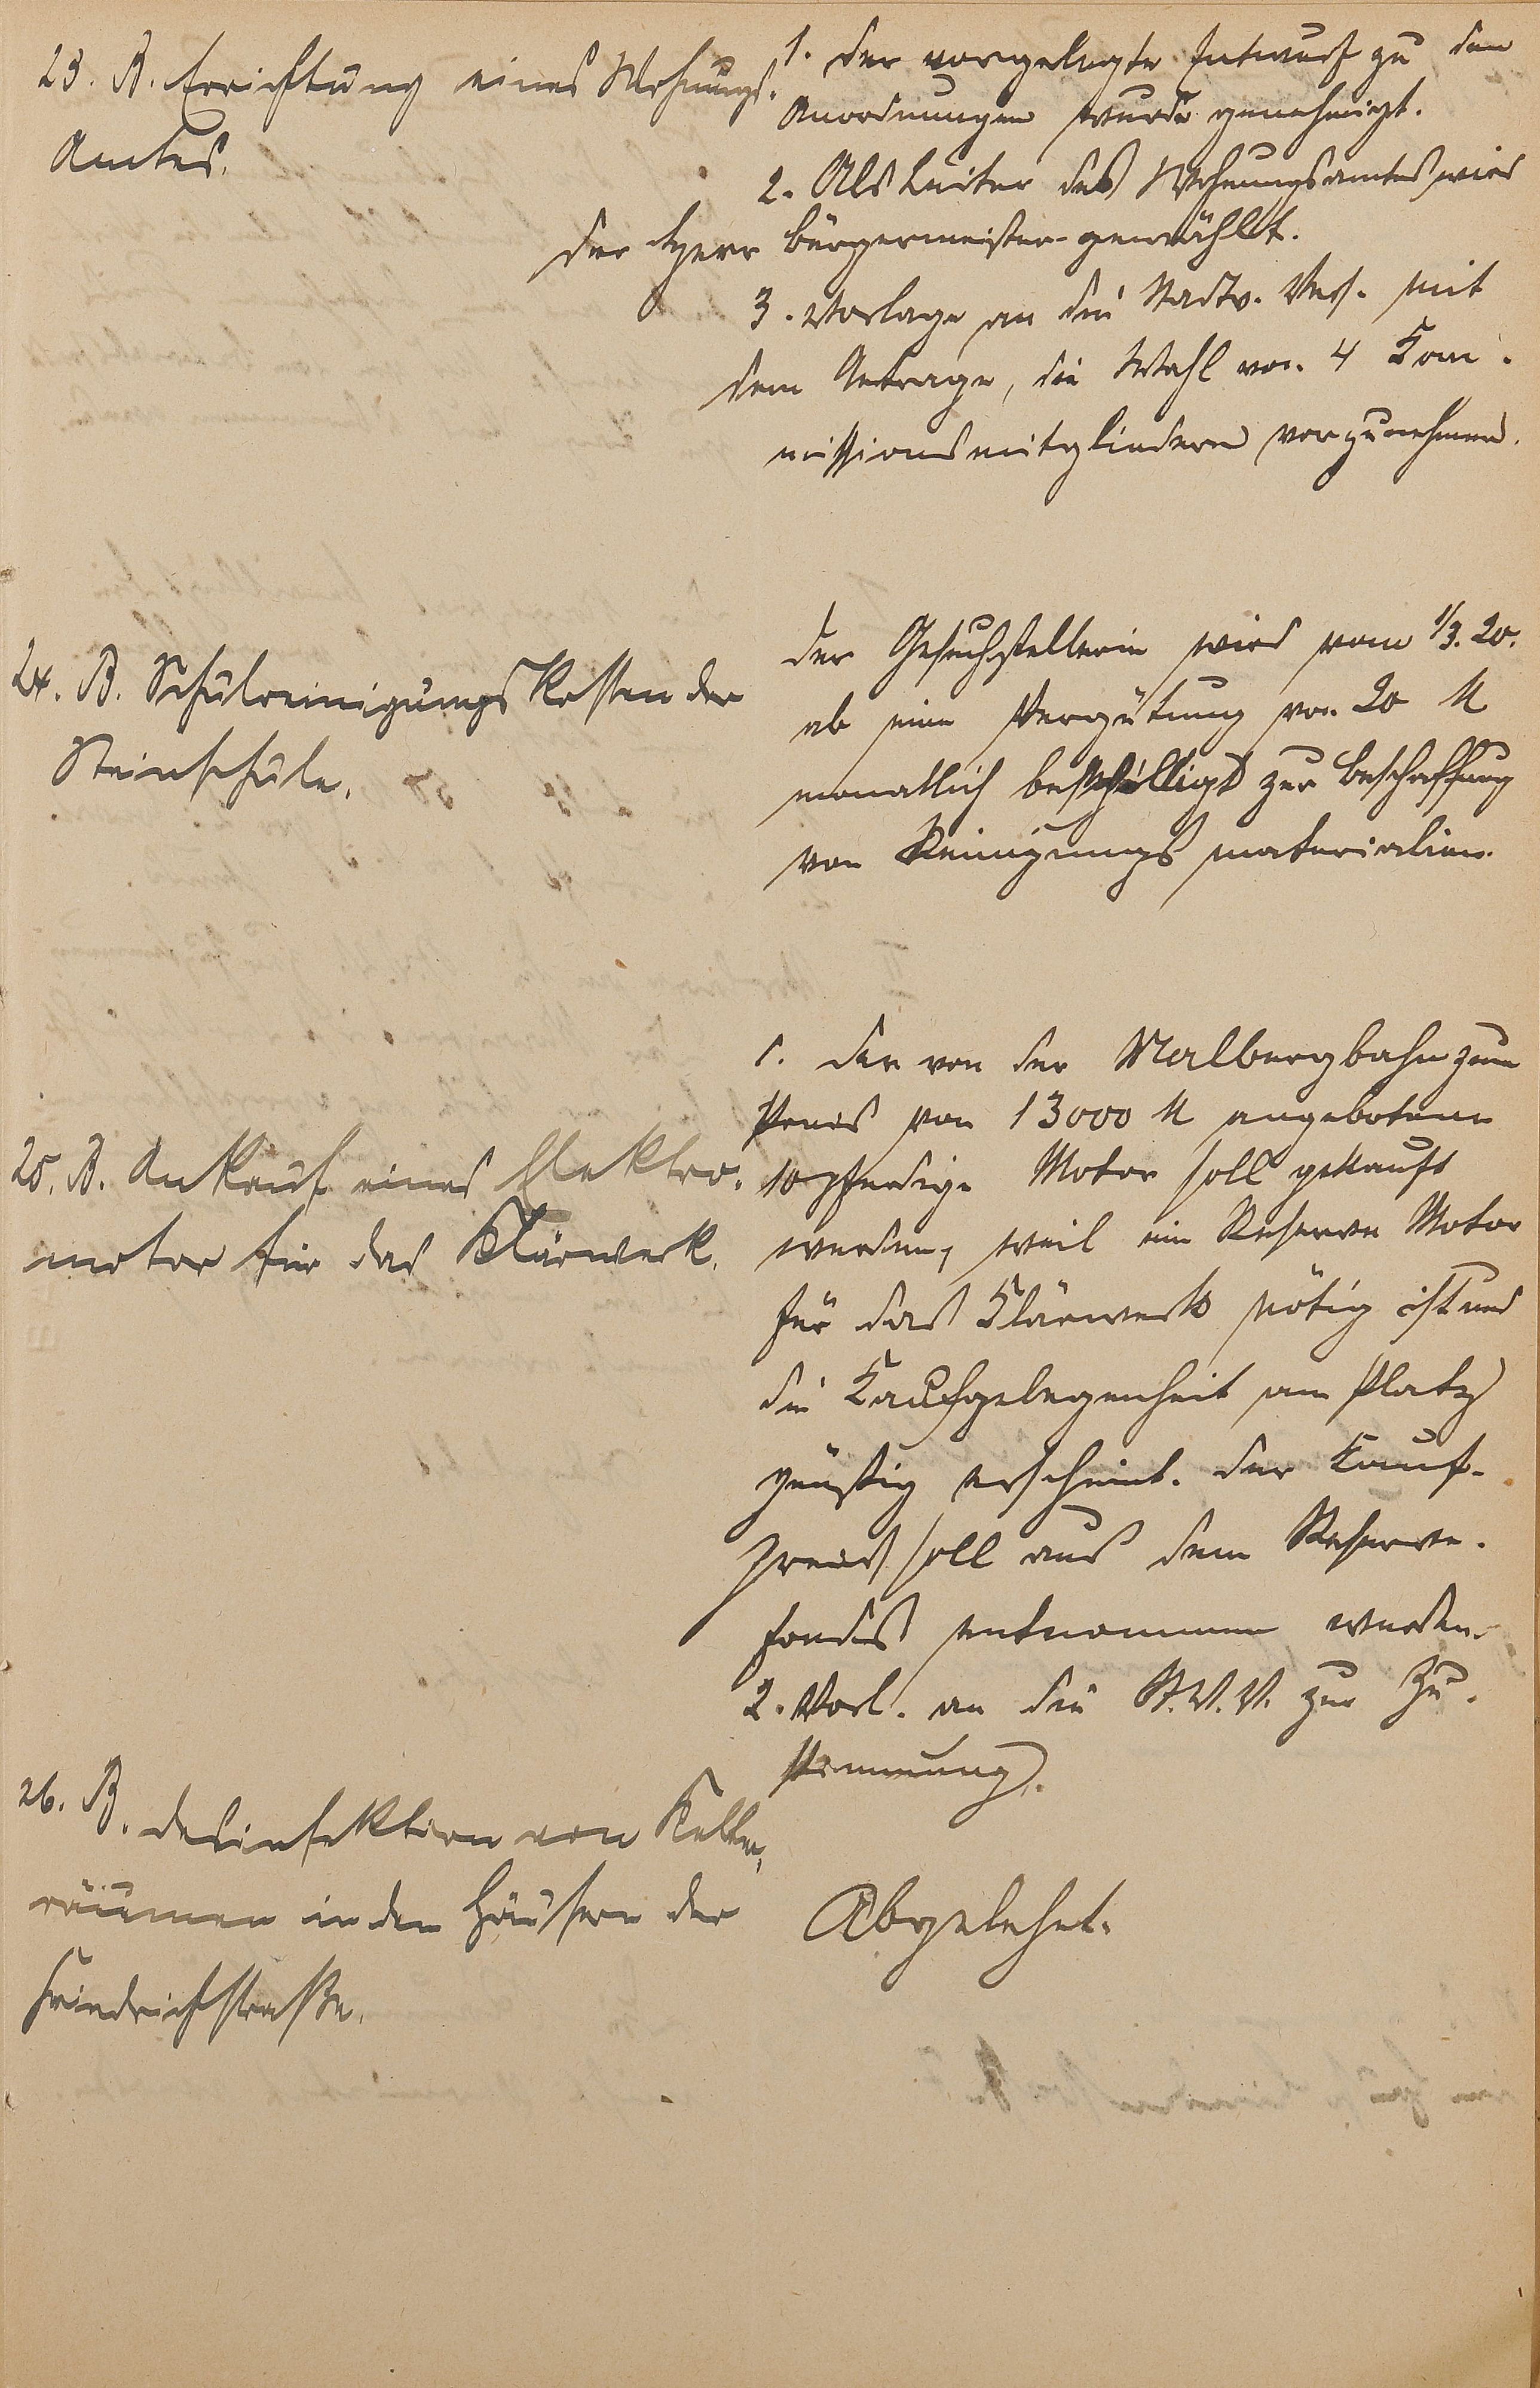 23. B. Errichtung eines Wohnungs-
Amtes.
1. Der vorgelegte Entwurf zu den
Anordnungen wurde genehmigt.
2. Als Leiter des Wohnungsamtes wird
der Herr Bürgermeister gewählt.
3. Vorlage an die Stadtv. Vers. mit
dem Antrage, die Wahl von 4 Kom-
missionsmitgliedern vorzunehmen.
24. B. Schulreinigungskosten der
Steinschule.
Der Gesuchstellerin wird vom 1/3. 20.
ab eine Vergütung von 20 M
monatlich bewilligt zur Beschaffung
von Reinigungsmaterialien.
25. B. Ankauf eines Elektro-
motor für das Klärwerk.
1. Der von der Malbergbahn zum
Preis von 13000 M angebotene
10 pferdige Motor soll gekauft
werden, weil ein Reserve Motor
für das Klärwerk nötig ist und
die Kaufgelegenheit am Platz
günstig erscheint. Der Kauf-
preis soll aus dem Reserve-
fonds entnommen werden.
2. Vorl. an die St. V. V. zur Zu-
stimmung.
26. B. Desinfektion von Keller-
räumen in den Häusern der
Friedrichstraße.
Abgelehnt.